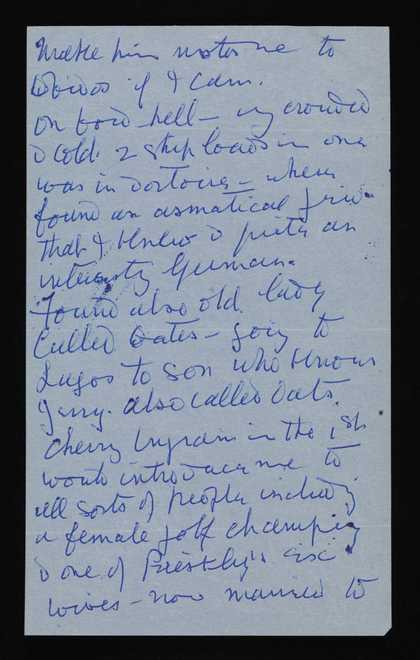 Make him                to
       if I can.
on              hell –       crowded
& cold. 2 ship loads in one
was in                – where
found an asmatical
that I knew &             an
                German.
Found also old lady
called Oates – going to
Lagos to son who knows
Jerry. also called Oats.
Cherry Ingram in the 1st
would introduce me to
all sorts of people including
a female golf champion
& one of Priestly's six
wives – now married to